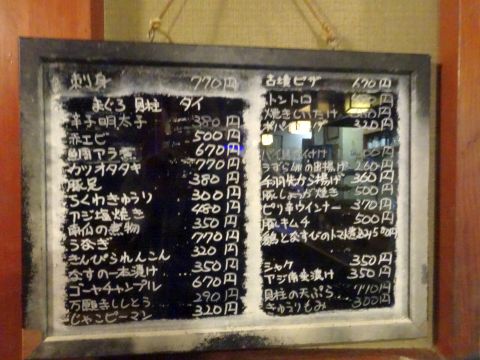 刺身 770円
まぐろ 貝柱 タイ
辛子明太子 380円
赤エビ 500円
鯛アラ煮 670円
カツオタタキ 770円
豚足 380円
ちくわきゅうり 300円
アジ塩焼き 480円
の煮物 350円
うなぎ 770円
きんぴられんこん 320円
なすの一本漬け 350円
ゴーヤチャンプル 670円
万願寺ししとう 290円
じゃこピーマン 320円
ピザ 670円
トントロ
焼きしいたけ
320円
うずら卵の串揚げ 260円
手羽先から揚げ 360円
豚しょうが焼き 500円
ピリ辛ウインナー 370円
豚キムチ 500円
鶏となすびのトマト煮込み 580円
シャケ 350円
アジ南蛮漬け 350円
貝柱の天ぷら 770円
きゅうりもみ 300円